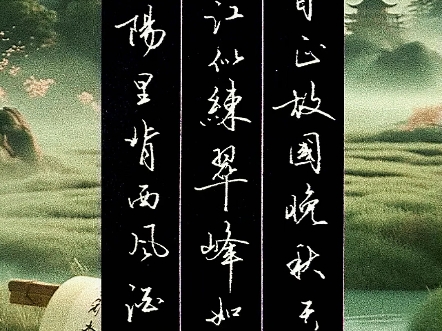 正故國晚秋天
江似練翠峰如
陽里背西風酒